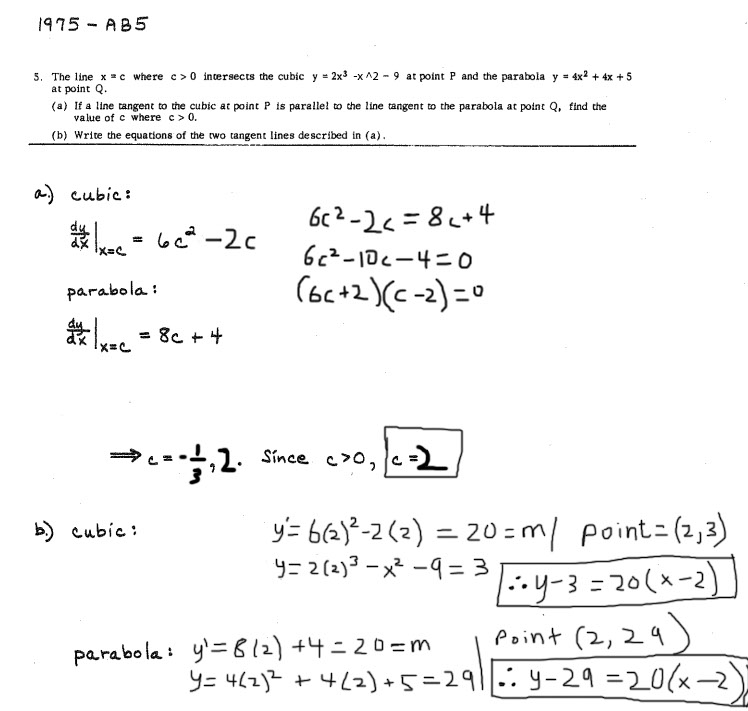 1975 - AB5
5. The line x = c where c > 0 intersects the cubic y = 2x³ -x^2 - 9 at point P and the parabola y = 4x² + 4x + 5
at point Q.
(a) If a line tangent to the cubic at point P is parallel to the line tangent to the parabola at point Q, find the
value of c where c > 0.
(b) Write the equations of the two tangent lines described in (a).
a.) cubic:
dy/dx |x=c = 6c² - 2c
6c² - 2c = 8c + 4
6c² - 10c - 4 = 0
(6c+2)(c-2) = 0
parabola:
dy/dx |x=c = 8c + 4
⟹ c = -1/3, 2. Since c>0, c = 2
b.) cubic:
y' = 6(2)² - 2(2) = 20 = m | point = (2,3)
y = 2(2)³ - x² - 9 = 3
∴ y-3 = 20(x-2)
parabola: y' = 8(2) + 4 = 20 = m | Point (2, 29)
y = 4(2)² + 4(2) + 5 = 29 | ∴ y-29 = 20(x-2)